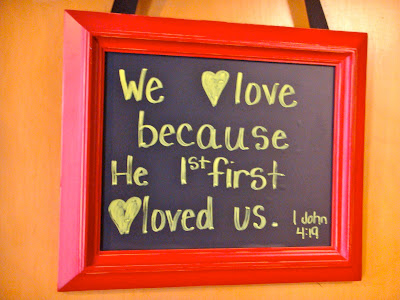 We ♥love
because
He 1st first
♥loved us.
1 John
4:19